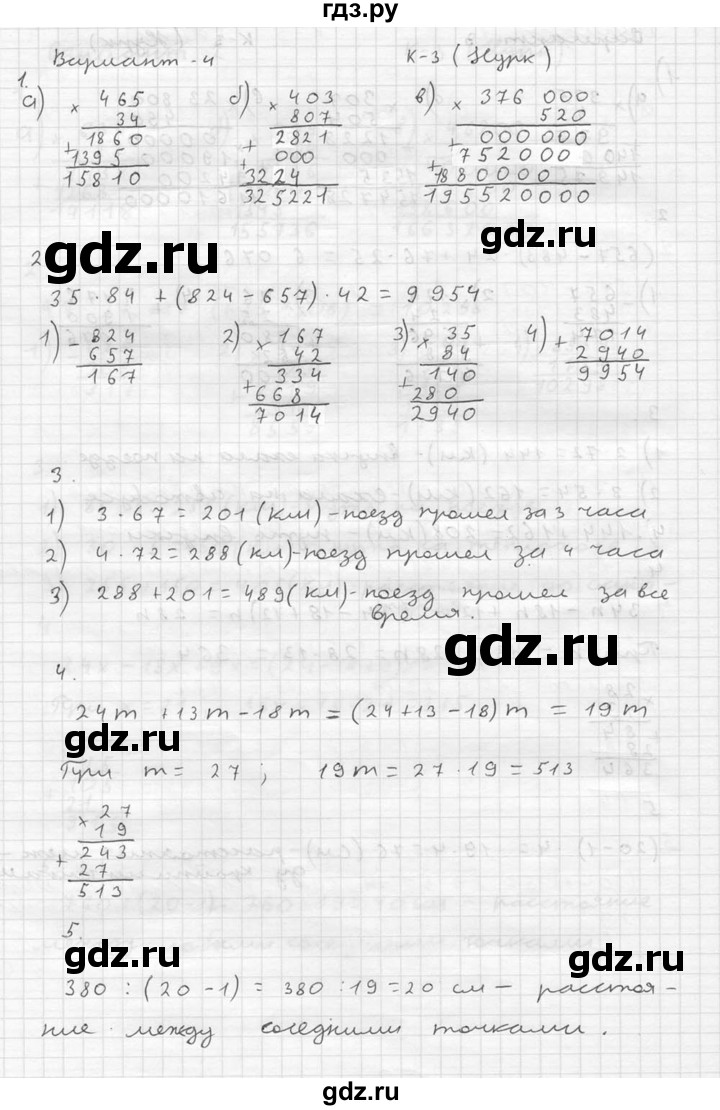 гдз.ру
Вариант - 4 К-3 (Нурк)
1.
а) × 465 б) × 403 в) × 376 000
34 807 520
1860 + 2821 + 000 000
+ 1395 + 000 + 752000
15810 3224 1880000
325221 195520000
gdz.ru gdz.ru
2
35 · 84 + (824 - 657) · 42 = 9954
1) - 824 2) × 167 3) × 35 4) + 7014
657 42 84 2940
167 + 334 + 140 9954
668 280
7014 2940
3.
1) 3 · 67 = 201 (км) - поезд прошел за 3 часа
2) 4 · 72 = 288 (км) - поезд прошел за 4 часа
3) 288 + 201 = 489 (км) - поезд прошел за все
время.
gdz.ru
4.
24m + 13m - 18m = (24 + 13 - 18) m = 19 m
gdz.ru
При m = 27 ; 19m = 27 · 19 = 513
× 27
19
+ 243
27
513
5.
gdz.ru
380 : (20 - 1) = 380 : 19 = 20 см - расстоя-
ние между соседними точками.
gdz.ru
gdz.ru